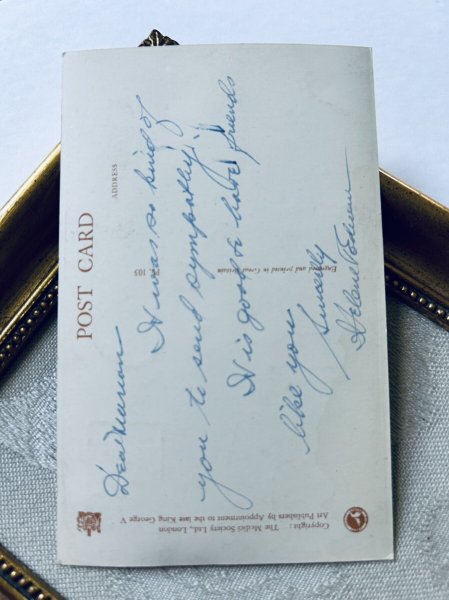 POST CARD
ADDRESS
Dear Marion
It was so kind of
you to send sympathy.
It is good to have friends
like you
Sincerely
Helene
PC 105
Engraved and printed in Great Britain
Copyright: The Medici Society Ltd., London
Art Publishers by Appointment to the late King George V